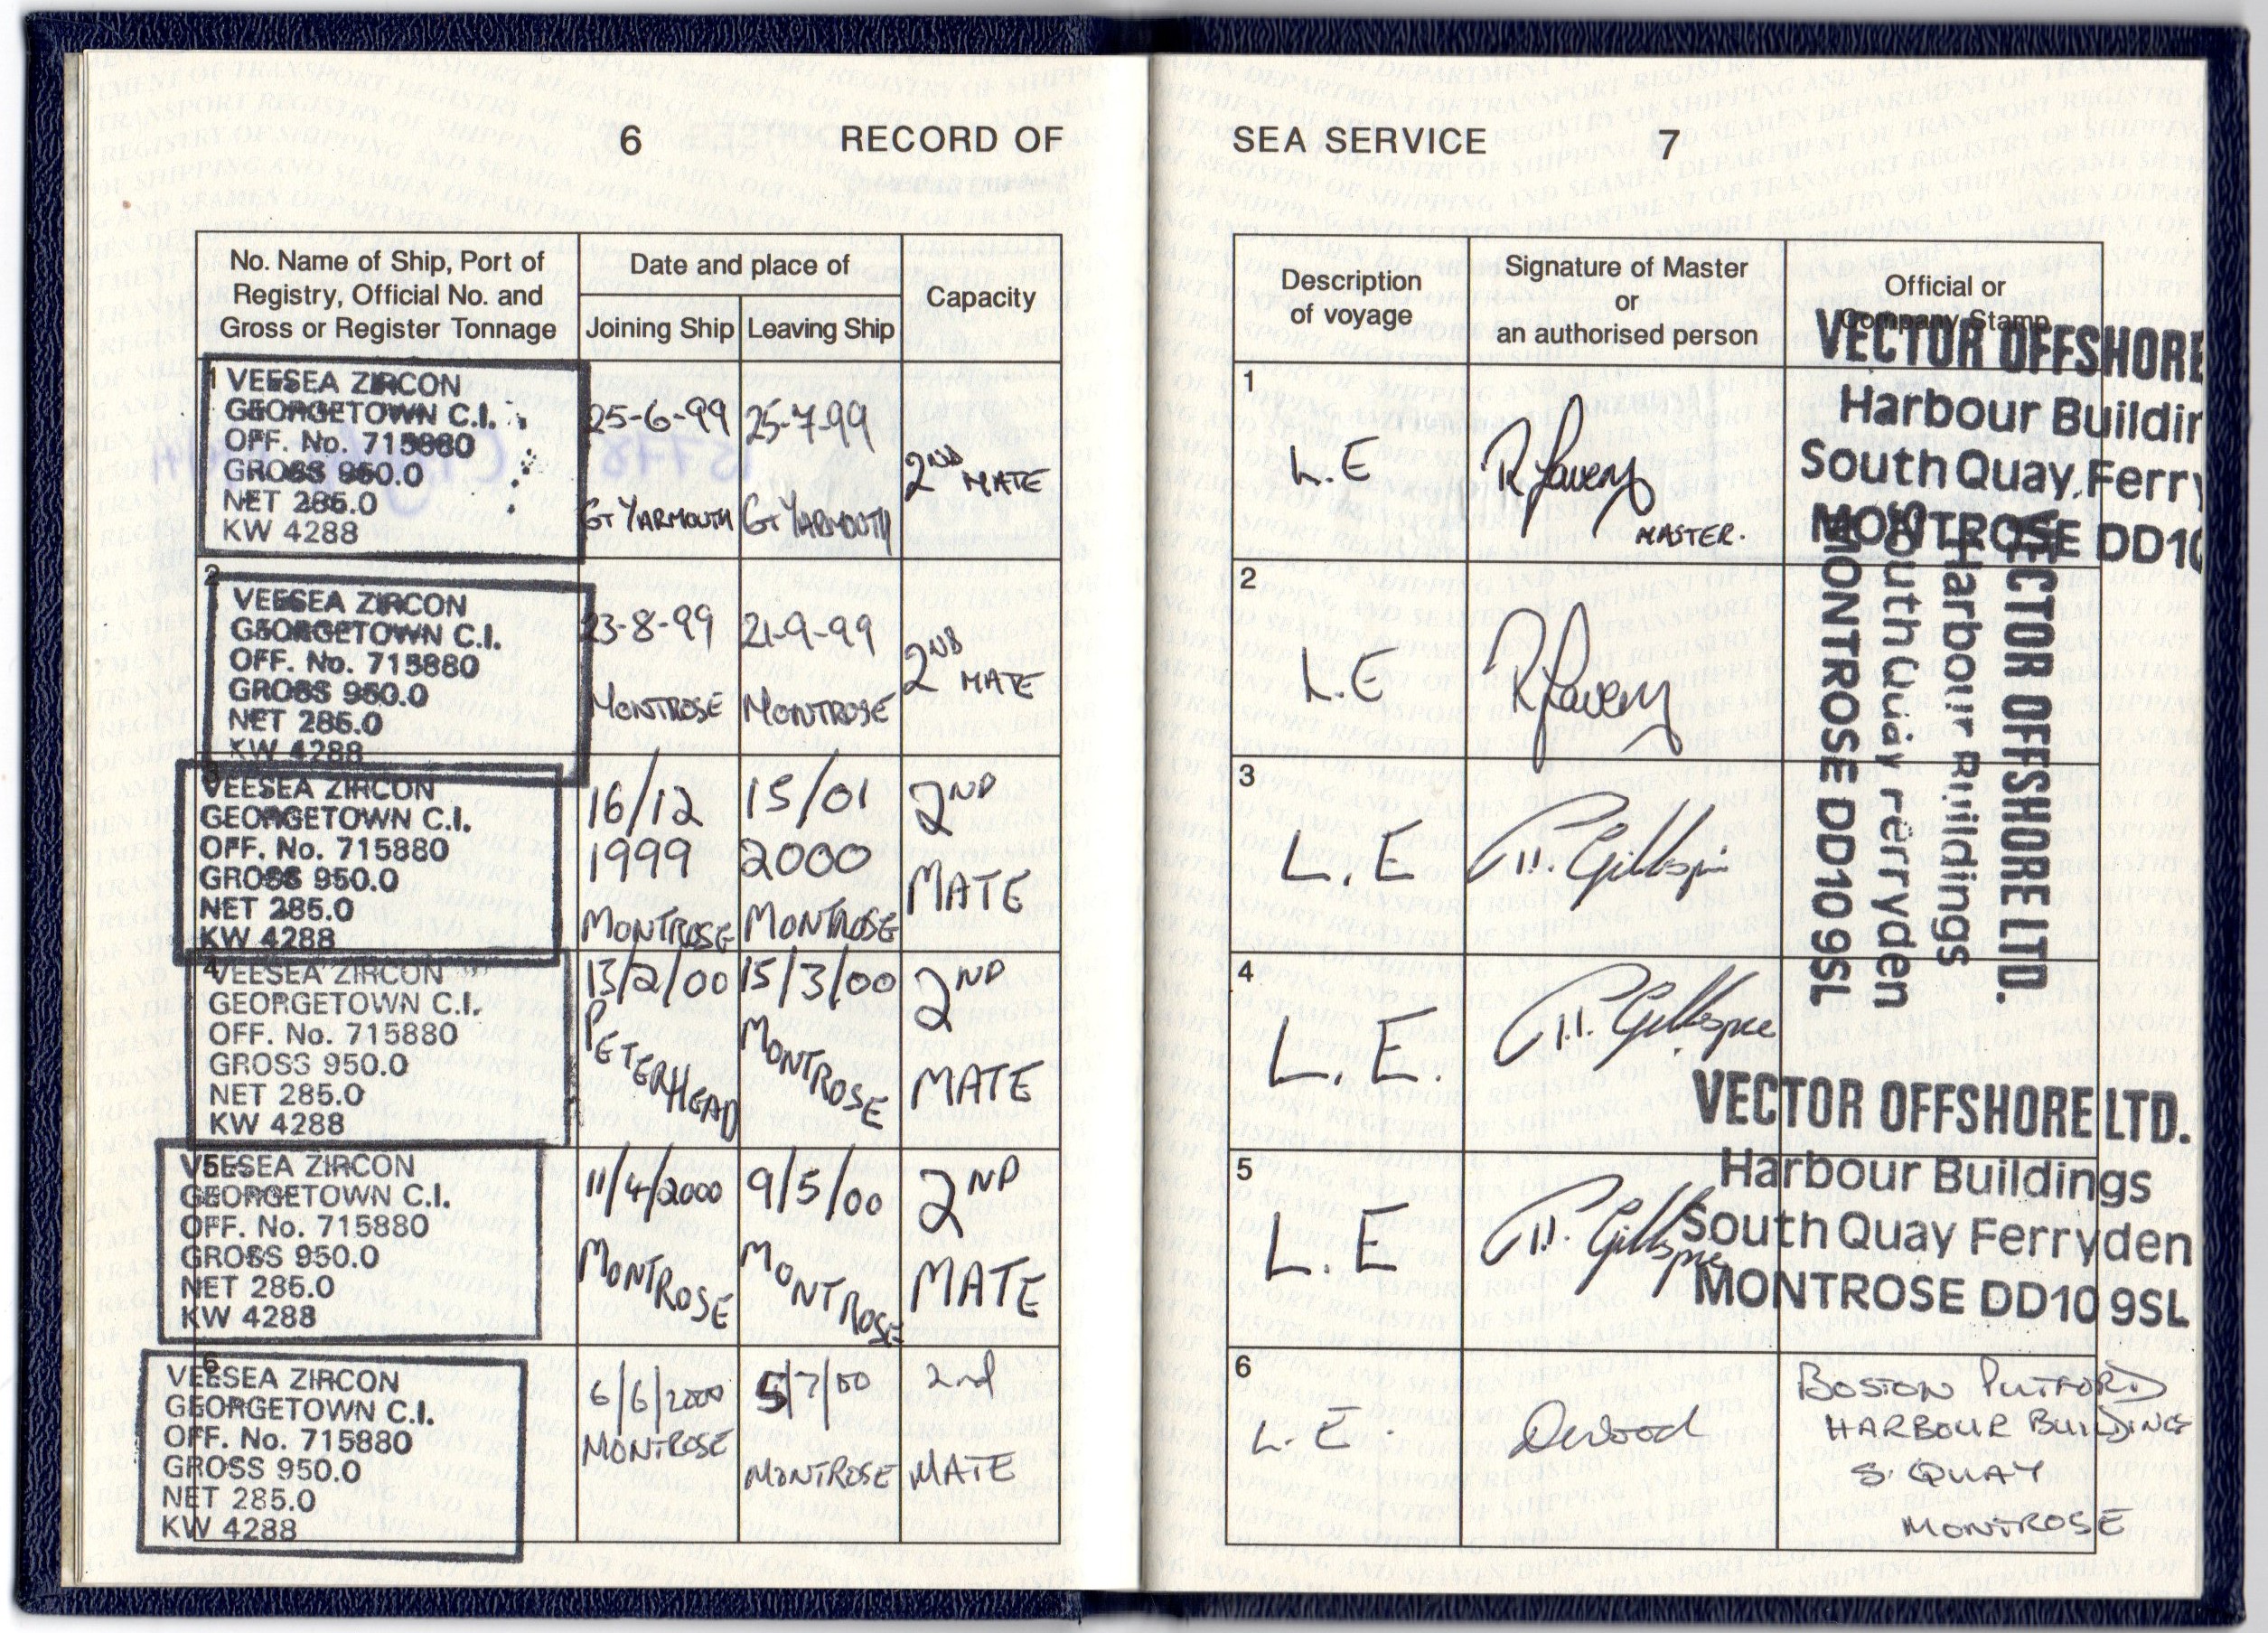 6 RECORD OF
No. Name of Ship, Port of
Registry, Official No. and
Gross or Register Tonnage
Date and place of
Joining Ship Leaving Ship
Capacity
1 VEESEA ZIRCON
GEORGETOWN C.I.
OFF. No. 715880
GROSS 950.0
NET 285.0
KW 4288
25-6-99 25-7-99
GT YARMOUTH GT YARMOUTH
2ND MATE
2
VEESEA ZIRCON
GEORGETOWN C.I.
OFF. No. 715880
GROSS 950.0
NET 285.0
KW 4288
23-8-99 21-9-99
MONTROSE MONTROSE
2ND MATE
3
VEESEA ZIRCON
GEORGETOWN C.I.
OFF. No. 715880
GROSS 950.0
NET 285.0
KW 4288
16/12 15/01
1999 2000
MONTROSE MONTROSE
2ND
MATE
4
VEESEA ZIRCON
GEORGETOWN C.I.
OFF. No. 715880
GROSS 950.0
NET 285.0
KW 4288
13/2/00 15/3/00
PETERHEAD MONTROSE
2ND
MATE
5
VEESEA ZIRCON
GEORGETOWN C.I.
OFF. No. 715880
GROSS 950.0
NET 285.0
KW 4288
11/4/2000 9/5/00
MONTROSE MONTROSE
2ND
MATE
6
VEESEA ZIRCON
GEORGETOWN C.I.
OFF. No. 715880
GROSS 950.0
NET 285.0
KW 4288
6/6/2000 5/7/00
MONTROSE MONTROSE
2nd
MATE
SEA SERVICE 7
Description
of voyage
Signature of Master
or
an authorised person
Official or
Company Stamp
VECTOR OFFSHORE
Harbour Buildin
South Quay, Ferry
MONTROSE DD10
1
L.E
R Lavery
MASTER.
2
L.E
R Lavery
3
L.E
Gillespie
VECTOR OFFSHORE LTD.
Harbour Buildings
South Quay Ferryden
MONTROSE DD10 9SL
4
L.E.
Gillespie
VECTOR OFFSHORE LTD.
Harbour Buildings
South Quay Ferryden
MONTROSE DD10 9SL
5
L.E
Gillespie
6
L.E.
BOSTON PUTFORD
HARBOUR BUILDING
S. QUAY
MONTROSE